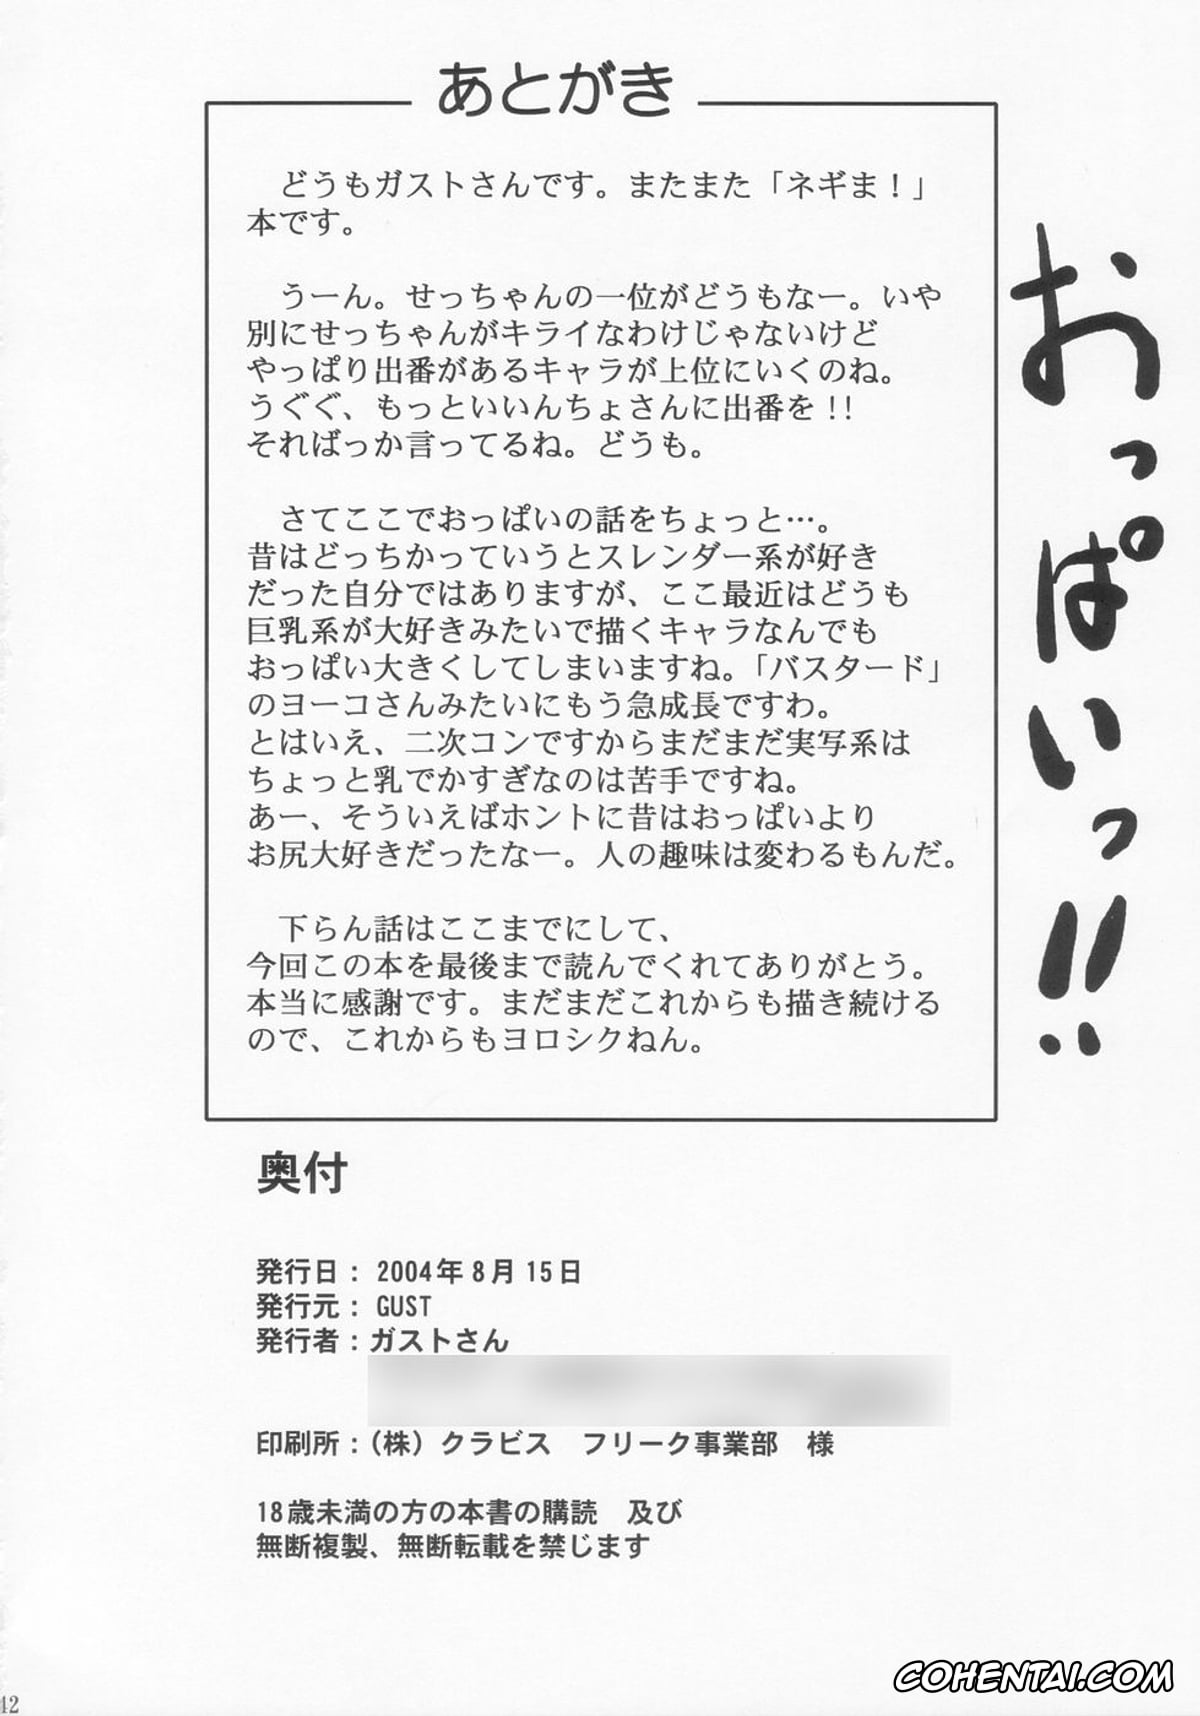 あとがき
　どうもガストさんです。またまた「ネギま！」
本です。
　うーん。せっちゃんの一位がどうもなー。いや
別にせっちゃんがキライなわけじゃないけど
やっぱり出番があるキャラが上位にいくのね。
うぐぐ、もっといいんちょさんに出番を!!
そればっか言ってるね。どうも。
　さてここでおっぱいの話をちょっと…。
昔はどっちかっていうとスレンダー系が好き
だった自分ではありますが、ここ最近はどうも
巨乳系が大好きみたいで描くキャラなんでも
おっぱい大きくしてしまいますね。「バスタード」
のヨーコさんみたいにもう急成長ですわ。
とはいえ、二次コンですからまだまだ実写系は
ちょっと乳でかすぎなのは苦手ですね。
あー、そういえばホントに昔はおっぱいより
お尻大好きだったなー。人の趣味は変わるもんだ。
　下らん話はここまでにして、
今回この本を最後まで読んでくれてありがとう。
本当に感謝です。まだまだこれからも描き続ける
ので、これからもヨロシクねん。
おっぱいっ!!
奥付
発行日：2004年8月15日
発行元：GUST
発行者：ガストさん
印刷所：（株）クラビス　フリーク事業部　様
18歳未満の方の本書の購読　及び
無断複製、無断転載を禁じます
42
COHENTAI.COM